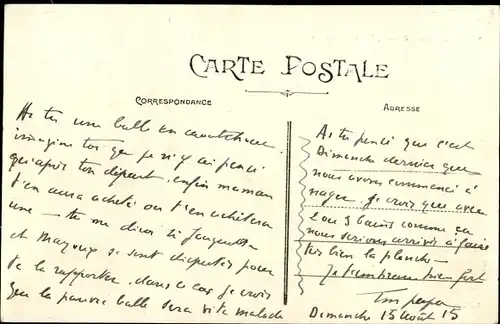 CARTE POSTALE
CORRESPONDANCE
ADRESSE
As tu une balle en caoutchouc
imagine toi que je n'y ai pensé
qu'après ton départ. enfin maman
t'en aura acheté ou t'en achètera
une — tu me diras si Jacqueline
et se sont disputés pour
te la rapporter. dans ce cas je crois
que la pauvre balle sera vite malade
As tu pensé que c'est
Dimanche dernier que
nous avons commencé à
nager. je crois que avec
2 ou 3 bains comme ça
nous serions arrivés à faire
très bien la planche —
Je t'embrasse bien fort
Ton papa
Dimanche 15 Août 15